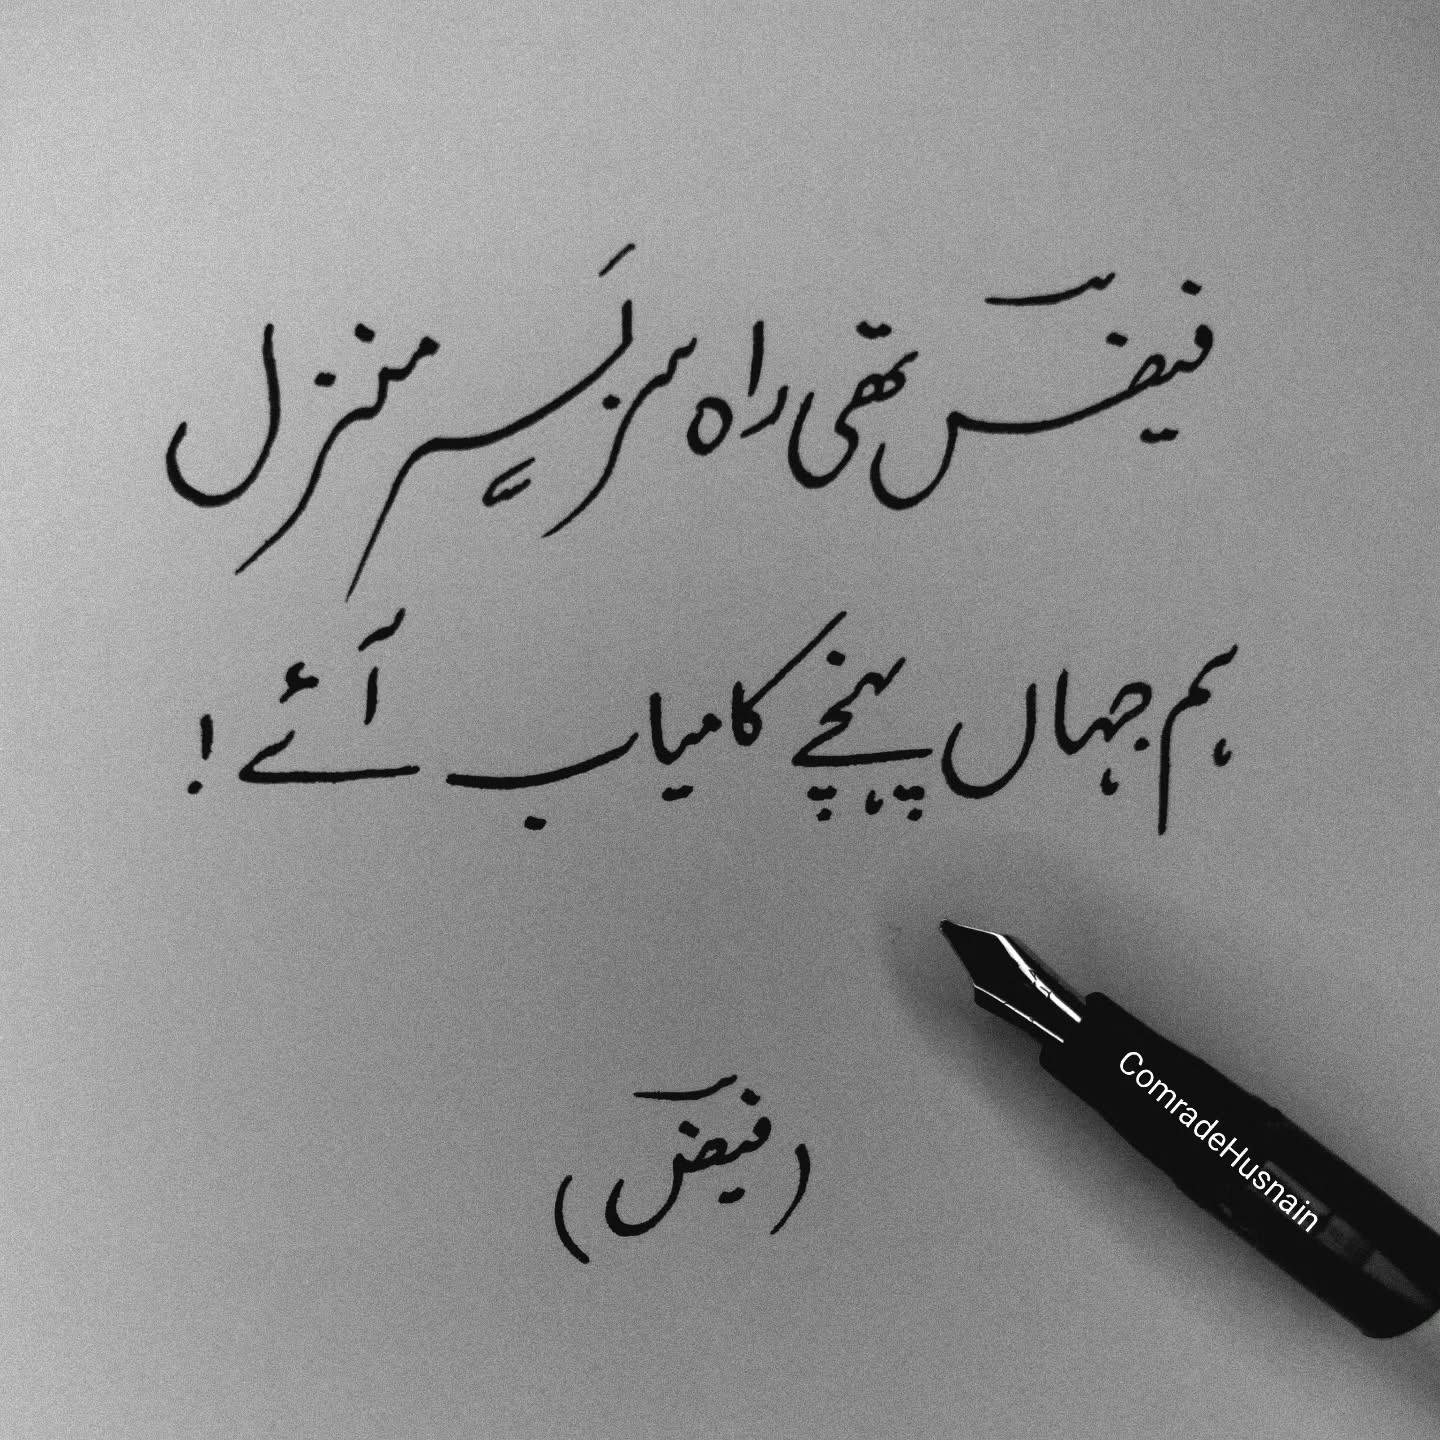 فیضؔ تھی راہ سر بَسر منزل
ہم جہاں پہنچے کامیاب آئے!
(فیضؔ)
ComradeHusnain